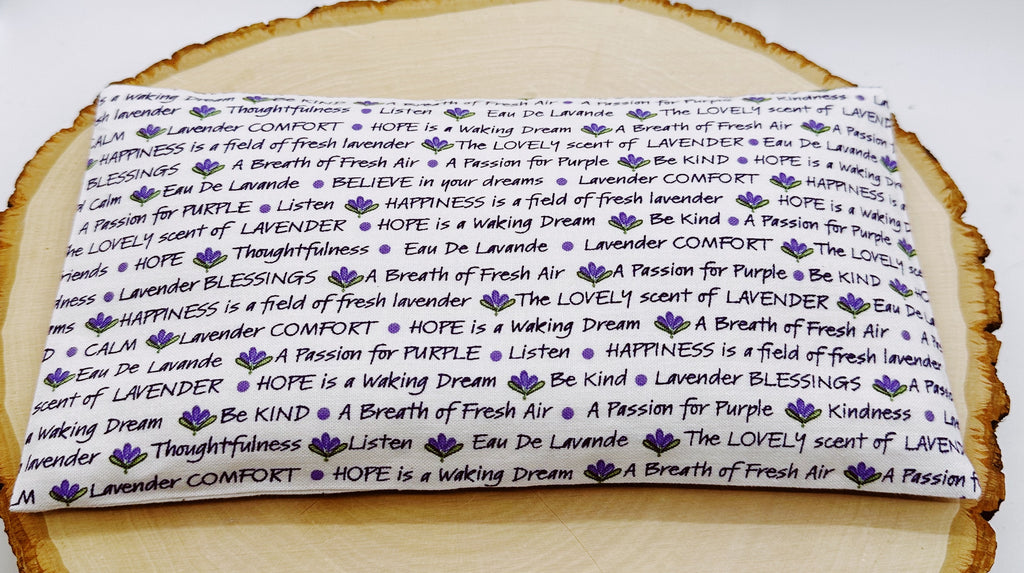 is a Waking Dream KIND A Breath of Fresh Air A Passion for Purple Kindness
lavender Thoughtfulness Listen Eau De Lavande The LOVELY scent of LAVEND
CALM Lavender COMFORT HOPE is a Waking Dream A Breath of Fresh Air A Passion
HAPPINESS is a field of fresh lavender The LOVELY scent of LAVENDER Eau De Lavande
BLESSINGS A Breath of Fresh Air A Passion for Purple Be KIND HOPE is a Waking Dr
Calm Eau De Lavande BELIEVE in your dreams Lavender COMFORT HAPPINESS is a
A Passion for PURPLE Listen HAPPINESS is a field of fresh lavender HOPE is a Waking
The LOVELY scent of LAVENDER HOPE is a Waking Dream Be Kind A Passion for Purple
riends HOPE Thoughtfulness Eau De Lavande Lavender COMFORT The LOVELY sce
dness Lavender BLESSINGS A Breath of Fresh Air A Passion for Purple Be KIND HO
ms HAPPINESS is a field of fresh lavender The LOVELY scent of LAVENDER Eau De
D CALM Lavender COMFORT HOPE is a Waking Dream A Breath of Fresh Air A Pa
Eau De Lavande A Passion for PURPLE Listen HAPPINESS is a field of fresh lavender
scent of LAVENDER HOPE is a Waking Dream Be Kind Lavender BLESSINGS A Pass
a Waking Dream Be KIND A Breath of Fresh Air A Passion for Purple Kindness La
lavender Thoughtfulness Listen Eau De Lavande The LOVELY scent of LAVEN
LM Lavender COMFORT HOPE is a Waking Dream A Breath of Fresh Air A Passion f